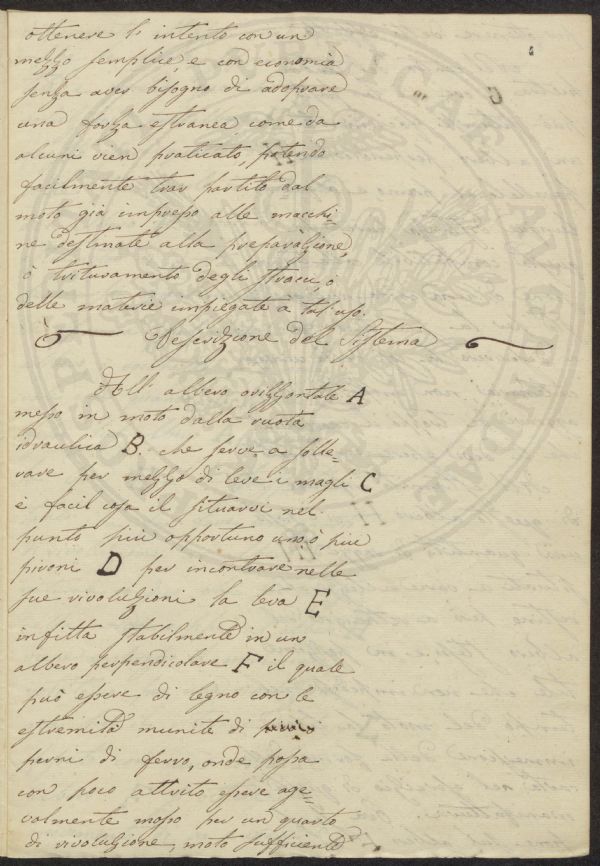 ottenere l'intento con un
mezzo semplice, e con economia
senza aver bisogno di adoprare
una forza estranea come da
alcuni vien praticato, potendo
facilmente trar partito dal
moto già impresso alle macchi=
ne destinate alla preparazione,
ò trituramento degli stracci, ò
delle materie impiegate a tal'uso.
Descrizione del Sistema
All'albero orizzontale A
messo in moto dalla ruota
idraulica B. che serve a solle=
vare per mezzo di leve i magli C
è facil cosa il situarvi nel
punto più opportuno uno, ò più
pironi D per incontrare nelle
sue rivoluzioni la leva E
infitta stabilmente in un
albero perpendicolare F il quale
può essere di legno con le
estremità munite di
perni di ferro, onde possa
con poco attrito essere age=
volmente mosso per un quarto
di rivoluzione, moto sufficiente